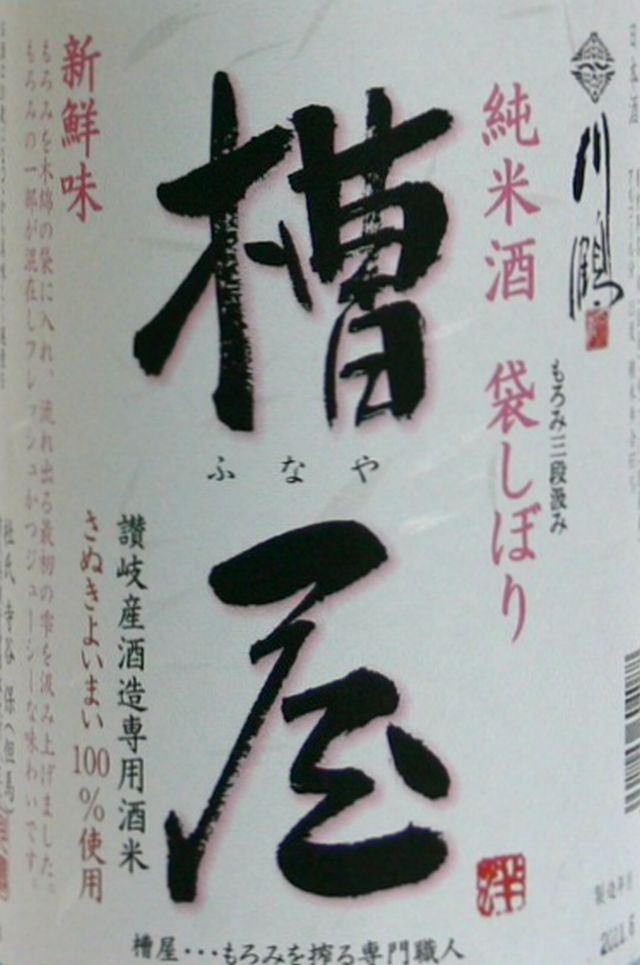 川鶴
純米酒 袋しぼり
もろみ三段汲み
槽屋
ふなや
新鮮味
もろみを木綿の袋に入れ、流れ出る最初の雫を汲み上げました。
もろみの一部が混在しフレッシュかつジューシーな味わいです。
讃岐産酒造専用酒米
さぬきよいまい 100%使用
杜氏 寺谷 保(但馬)
槽屋・・・もろみを搾る専門職人